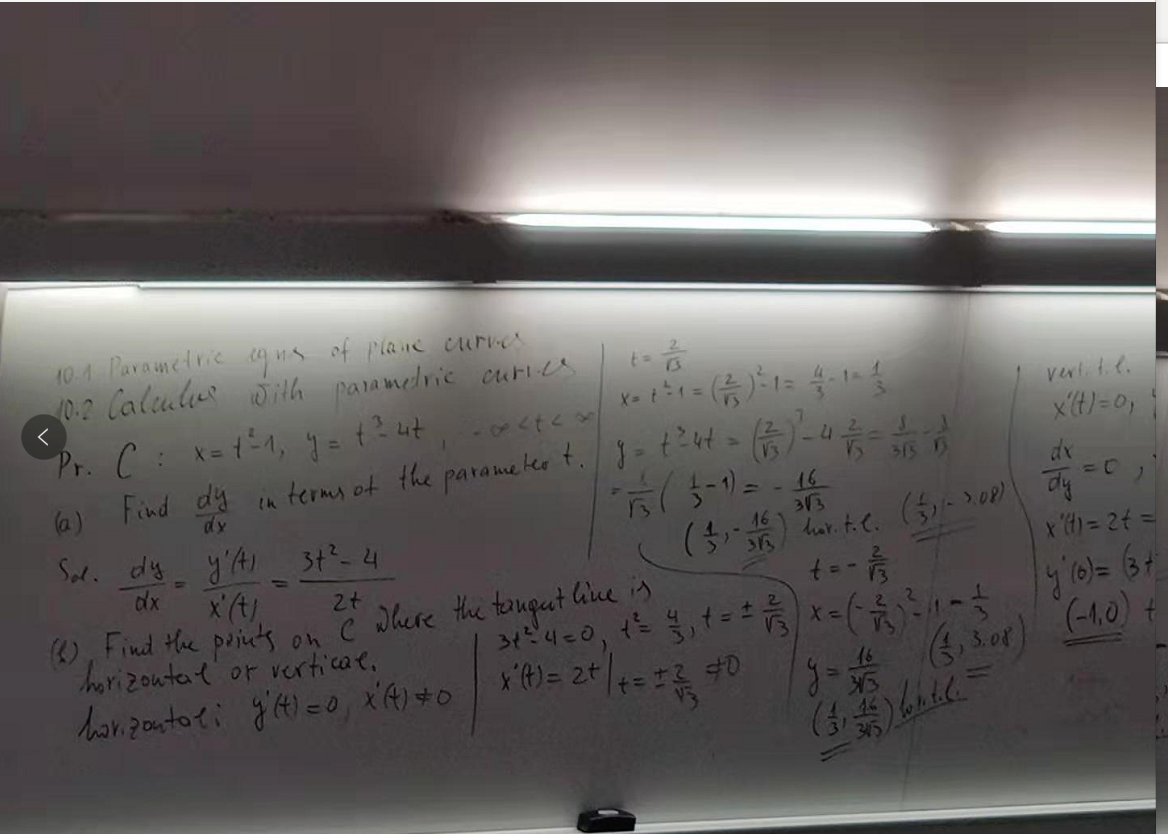 10.1 Parametric eqns of plane curves
10.2 Calculus with parametric curves
Pr. C : x = t² - 1, y = t³ - 4t, -∞ < t < ∞
(a) Find dy/dx in terms of the parameter t.
Sol. dy/dx = y'(t)/x'(t) = (3t² - 4)/2t
(b) Find the points on C where the tangent line is
horizontal or vertical.
horizontal: y'(t) = 0, x'(t) ≠ 0
3t² - 4 = 0, t² = 4/3, t = ± 2/√3
x'(t) = 2t | t = ± 2/√3 ≠ 0
t = 2/√3
x = t² - 1 = (2/√3)² - 1 = 4/3 - 1 = 1/3
y = t³ - 4t = (2/√3)³ - 4 2/√3 = 8/3√3 - 8/√3
( 1/3 - 1) = - 16/3√3
(1/3, - 16/3√3) hor. t.l. (1/3, - 3.08)
t = - 2/√3
x = (- 2/√3)² - 1 = 1/3
y = 16/3√3
(1/3, 3.08)
(1/3, 16/3√3) hor. t.l.
vert. t.l.
x'(t) = 0,
dx/dy = 0,
x'(t) = 2t =
y'(0) = (3t
(-1,0) t